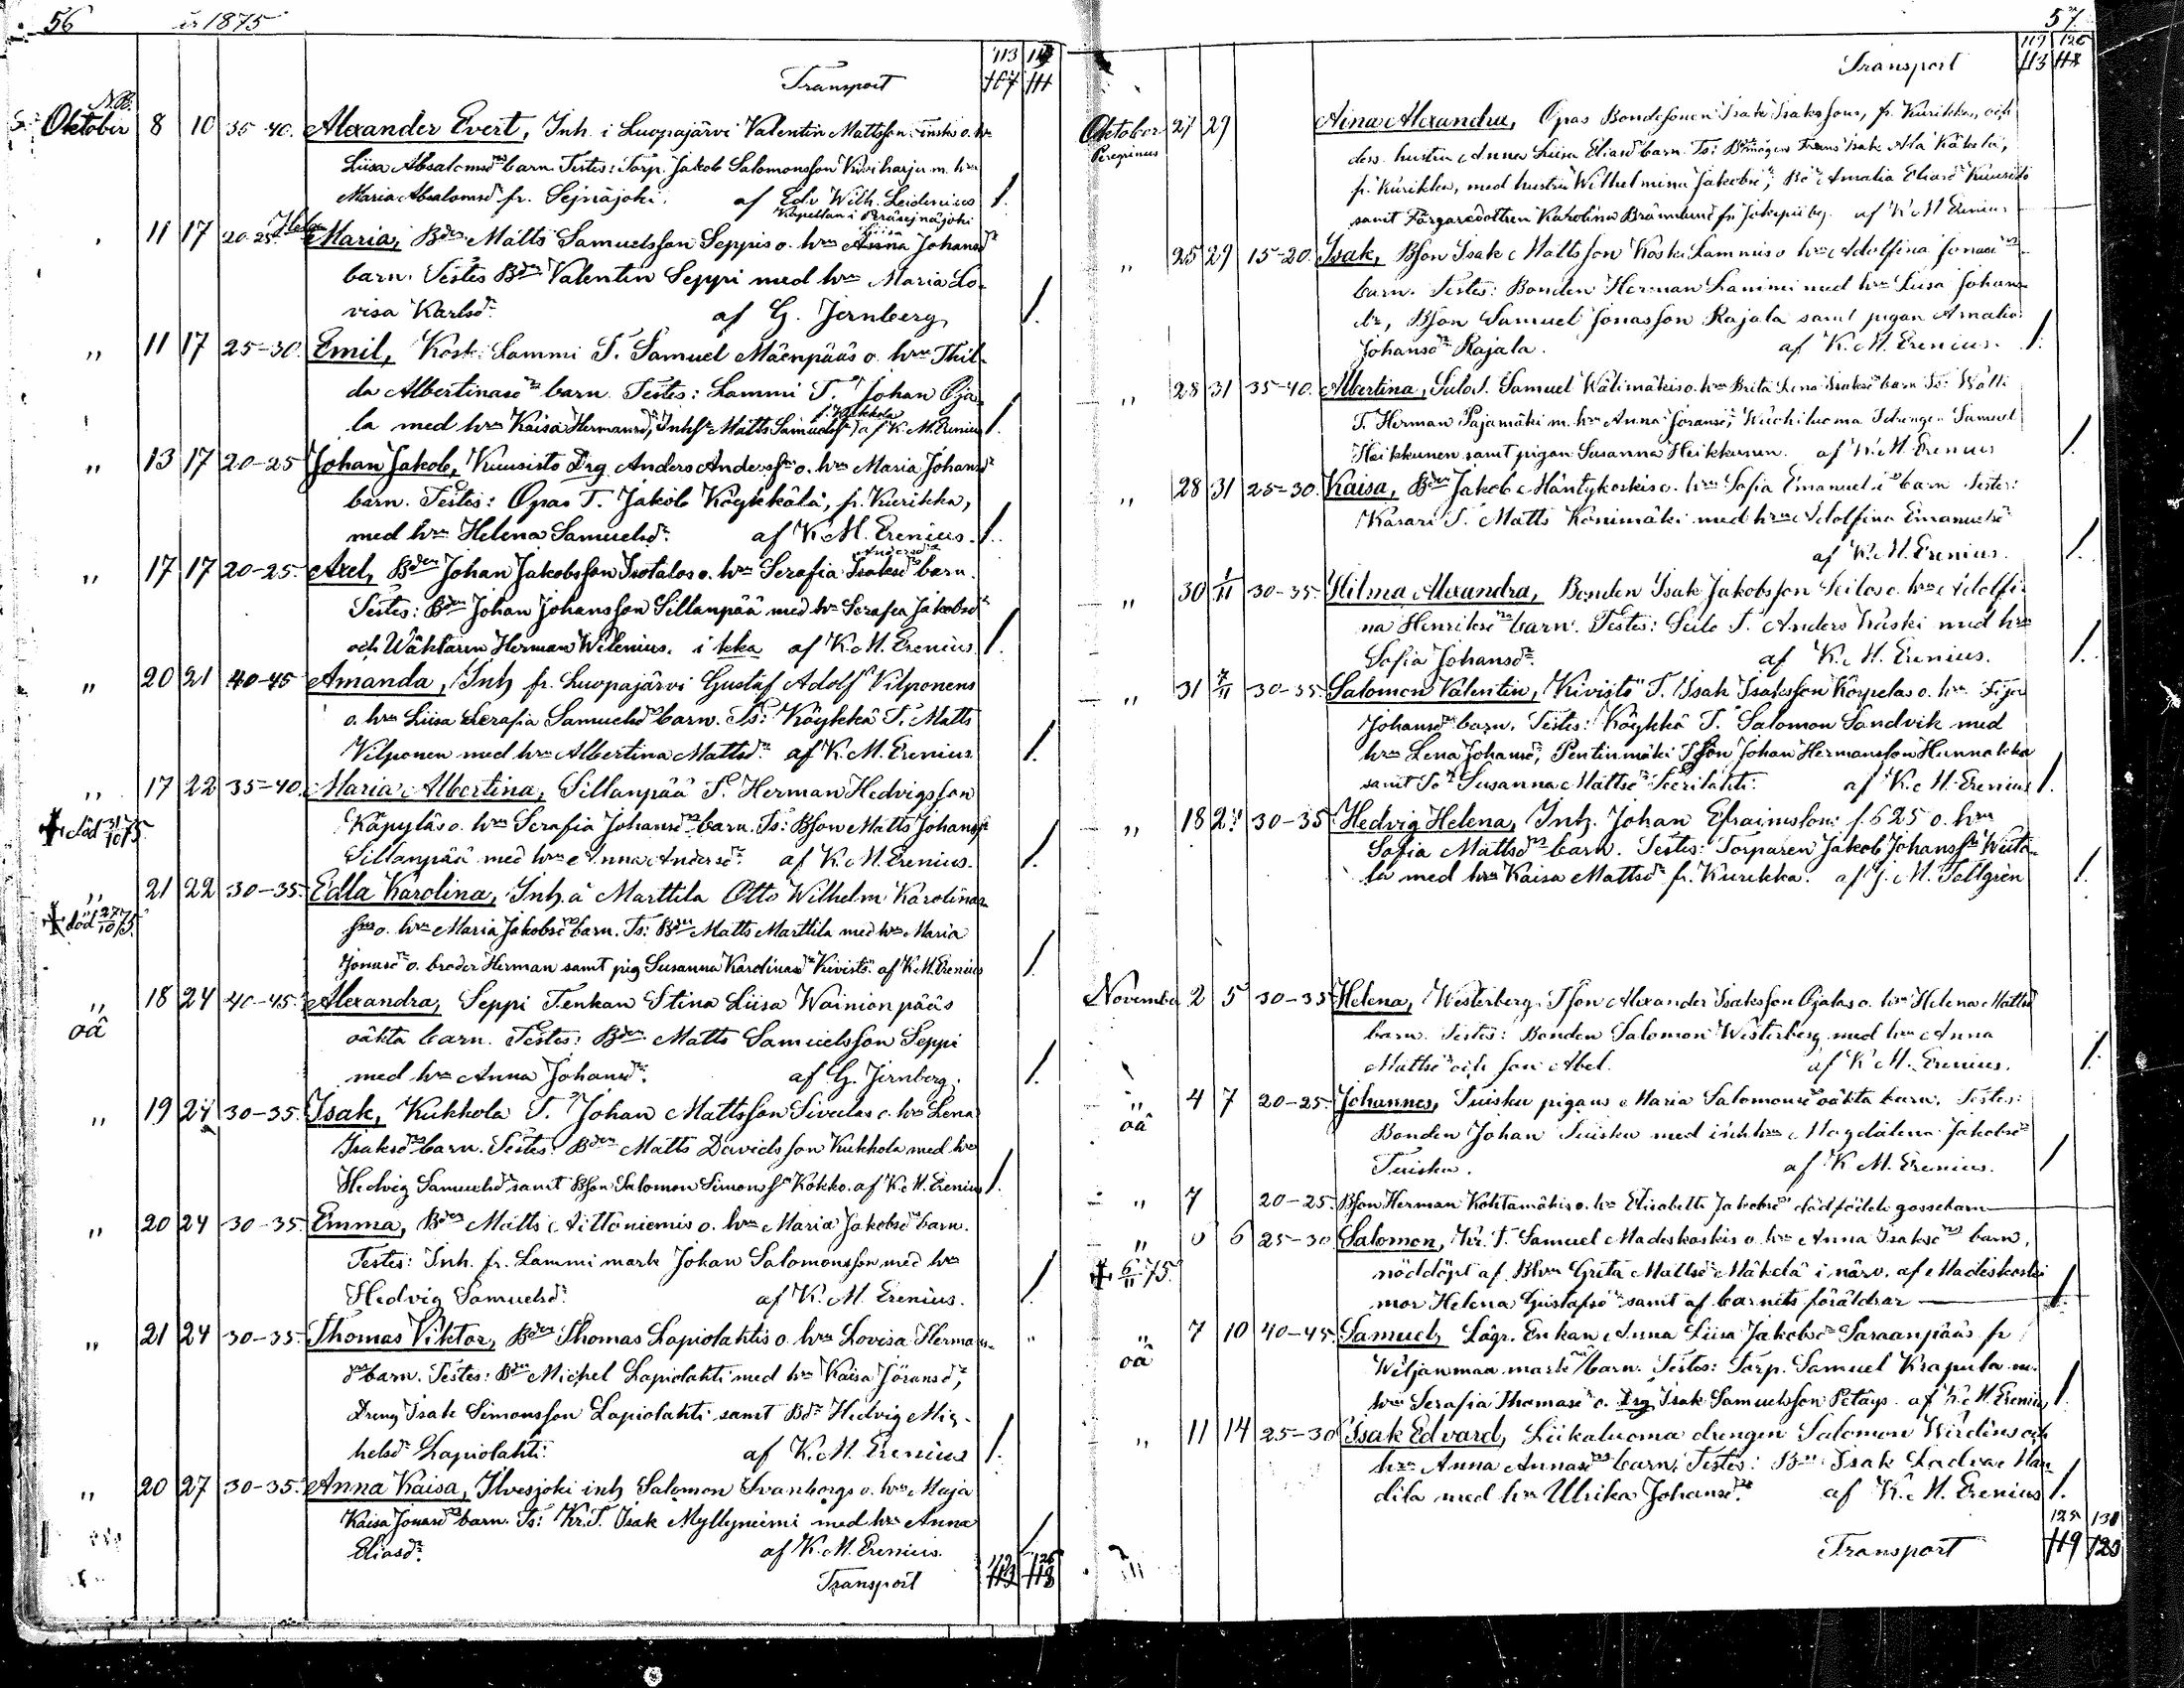 56 år 1875
113
Transport 107 111
N.B.
Oktober 8 10 35-40. Alexander Evert, Inh. i Luopajärvi Valentin Mattsson o. hn
Liisa Absalomsdrs barn. Testes: Torp. Jakob Salomonsson Kiviharju m. hn
Maria Absalomsdr fr. Sejnäjoki. af Edv. Wilh. Leidenius /.
Kapellan i Peräsejnäjoki
Liisa
" 11 17 20-25. Helen Maria, Bden Matts Samuelsson Seppis o. hns Anna Johansdrs
barn. Testes Bden Valentin Seppi med hn Maria Lo-
visa Karlsdr. af G. Jernberg /.
" 11 17 25-30. Emil, Kosk. Lammi T. Samuel Mäenpääs o. hns Thil-
da Albertinasdrs barn. Testes: Lammi T. Johan Oja-
f. Kukkola
la med hn Kaisa Hermansdr, Inhs Matts Samuelsson af K. M. Erenius /.
" 13 17 20-25 Johan Jakob, Kuusisto Drg Anders Anderss o. hns Maria Johansdrs
barn. Testes: Opas T. Jakob Köykkälä, fr. Kurikka,
med hn Helena Samuelsdr. af K. M. Erenius. /.
Andersdrs
" 17 17 20-25. Axel, Bden Johan Jakobsson Isotalos o. hns Serafia Isaksdrs barn.
Testes: Bden Johan Johansson Sillanpää med hn Serafia Jakobsdr
och Wäktaren Herman Wilenius. i kka af K. M. Erenius /.
" 20 21 40-45 Amanda, Inh fr. Luopajärvi Gustaf Adolf Vilponens
o. hns Liisa Serafia Samuelsdrs barn. Ts: Köykkä T. Matts
Vilponen med hn Albertina Mattsdr. af K. M. Erenius. /.
" 17 22 35-40. Maria Albertina, Sillanpää T. Herman Hedvigsson
död 31/10 75. Käpyläs o. hns Serafia Johansdrs barn. Ts: Bson Matts Johanss
Sillanpää med hn Anna Andersdr. af K. M. Erenius. /.
" 21 22 30-35. Edla Karolina, Inh. å Marttila Otto Wilhelm Karolinas-
död 27/10 75. sons o. hns Maria Jakobsdrs barn. Ts: Bden Matts Marttila med hn Maria
Jonasdr o. broder Herman samt pig Susanna Karolinasdr Kivistö. af K. M. Erenius /
" 18 24 40-45. Alexandra, Seppi T.enkan Stina Liisa Wainionpääs
oä oäkta barn. Testes: Bden Matts Samuelsson Seppi
med hn Anna Johansdr. af G. Jernberg. /.
" 19 24 30-35. Isak, Kukkola T. Johan Mattsson Sivulas o. hns Lena
Isaksdrs barn. Testes: Bden Matts Davidsson Kukkola med hn
Hedvig Samuelsdr samt Bson Salomon Simonss Kokko. af K. M. Erenius /.
" 20 24 30-35. Emma, Bden Matts Aittoniemis o. hns Maria Jakobsdrs barn.
Testes: Inh. fr. Lammi mark Johan Salomonsson med hn
Hedvig Samuelsdr. af K. M. Erenius. /.
" 21 24 30-35. Thomas Viktor, Bden Thomas Lapiolahtis o. hns Lovisa Hermans-
drs barn. Testes: Bden Michel Lapiolahti med hn Kaisa Göransdr,
Dreng Isak Simonsson Lapiolahti samt Bdr Hedvig Mic-
helsdr Lapiolahti. af K. M. Erenius /.
" 20 27 30-35. Anna Kaisa, Ilvesjoki inh Salomon Svanborgs o. hns Maja
Kaisa Jonasdrs barn. Ts: Kr.T. Isak Myllyniemi med hn Anna /
Eliasdr. af K. M. Erenius.
Transport 113 118
57
119 126
Transport 113 118
Oktober 27 29 Aina Alexandra, Opas Bondesonen Isak Isakssons, fr. Kurikka, och
Peregrinus dess hustru Anna Liisa Eliasdrs barn. Ts: Bdemågen Frans Isak Ala Käkelä,
fr. Kurikka, med hustru Wilhelmina Jakobsdr, Bdr Amalia Eliasdr Kuusisto
samt Färgaredottren Karolina Brännlund fr. af K. M. Erenius
" 25 29 15-20. Isak, Bson Isak Mattsson Koski Lammis o hns Adolfina Jonasdrs
barn. Testes: Bonden Herman Lammi med hn Liisa Johans-
dr, Bson Samuel Jonasson Rajala samt pigan Amalia
Johansdr Rajala. af K. M. Erenius. /.
" 28 31 35-40. Albertina, Sulo T. Samuel Wälimäkis o. hns Brita Lena Isaksdrs barn Ts: Wätti
T. Herman Pajamäki m. hn Anna Göransdr, drengen Samuel
Heikkunen samt pigan Susanna Heikkunen. af K. M. Erenius /.
" 28 31 25-30. Kaisa, Bden Jakob Häntykoskis o. hns Sofia Emanuelsdrs barn Testes:
Kasari T. Matts Könimäki med hn Adolfina Emanuelsdr
af K. M. Erenius. /.
" 30 1/11 30-35. Hilma Alexandra, Bonden Isak Jakobsson Luilos o. hns Adolfi-
na Henriksdrs barn. Testes: T. Anders Koski med hn
Sofia Johansdr. af K. M. Erenius. /.
" 31 7/11 30-35 Salomon Valentin, Kivistö T. Isak Isaksson Koypelas o. hns
Johansdrs barn. Testes: Köykkä T. Salomon Sandvik med
hn Lena Johansdr, Pentinmäki Tson Johan Hermansson Hunnakka
samt Tdr Susanna Mattsdr af K. M. Erenius /.
" 18 24 30-35 Hedvig Helena, Inh. Johan Efraimsson f. 625 o. hns
Sofia Mattsdrs barn. Testes: Torparen Jakob Johanss Wiita-
la med hn Kaisa Mattsdr fr. Kurikka. af J. M. Tallgren /.
November 2 5 30-35 Helena, Westerberg. Tson Alexander Isaksson Ojalas o. hns Helena Mattsdrs
barn. Testes: Bonden Salomon Westerberg med hn Anna
Mattsdr och son Abel. af K. M. Erenius. /.
" 4 7 20-25. Johannes, Tuisku pigans Maria Salomonsdrs oäkta barn. Testes:
oä Bonden Johan Tuisku med inh.hn Magdalena Jakobsdr
Tuisku. af K. M. Erenius. /
" 7 20-25. Bson Herman Kohtamäkis o. hns Elisabeth Jakobsdrs dödfödde gossebarn
" 6 25-30 Salomon, Kr. T. Samuel Madeskoskis o. hns Anna Isaksdrs barn,
6/11 75. nöddöpt af Bhn Greta Mattsdr Mäkelä i närv. af Madeskoski
mor Helena Gustafsdr samt af barnets föräldrar /.
" 7 10 40-45. Samuel, Lägr. Enkan Anna Liisa Jakobsdr Saraanpääs fr
oä Wiljanmaa mark barn. Testes: Torp. Samuel Krapula m.
hn Serafia Thomasdr o. Drg Isak Samuelsson Petäys. af K. M. Erenius /.
" 11 14 25-30 Isak Edvard, Liikaluoma drengen Salomon Wirdens och
hns Anna Annasdrs barn. Testes: Bden Isak Ladvae Man-
dila med hn Ulrika Johansdr. af K. M. Erenius /.
125 131
Transport 119 123